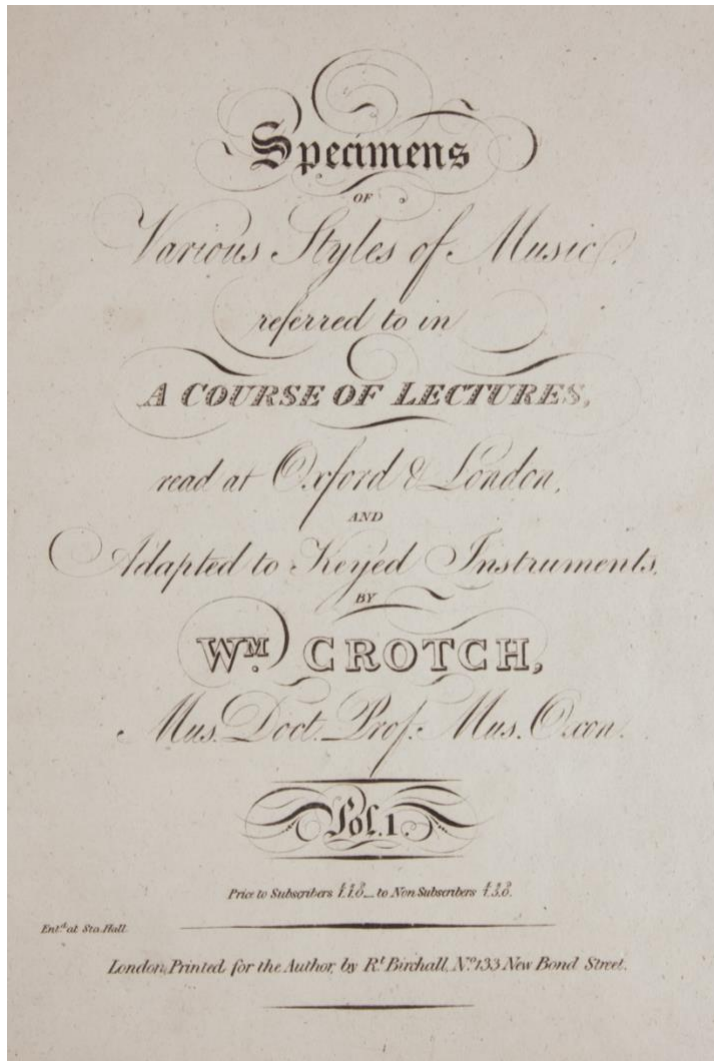 Specimens
OF
Various Styles of Music
referred to in
A COURSE OF LECTURES,
read at Oxford & London,
AND
Adapted to Keyed Instruments,
BY
Wm. CROTCH,
Mus. Doct. Prof. Mus. Oxon.
Vol. 1.
Price to Subscribers to Non Subscribers
Ent.d at Sta. Hall.
London, Printed for the Author, by Rt. Birchall, No. 133 New Bond Street.